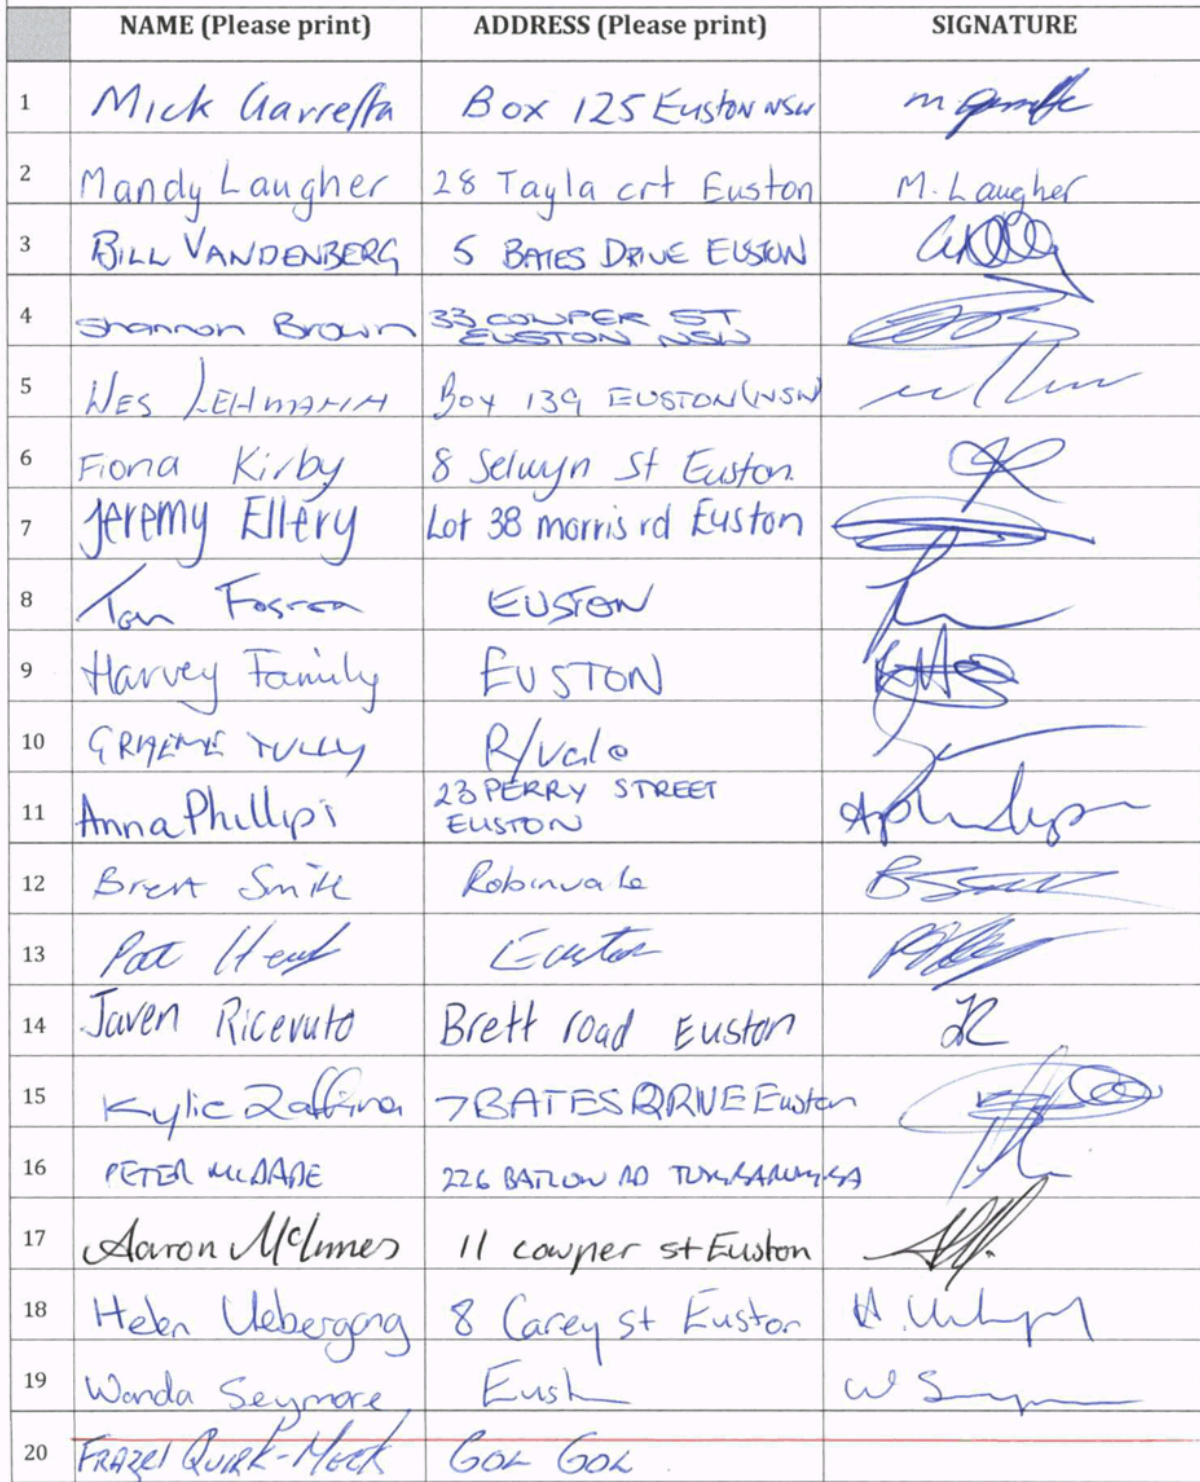 NAME (Please print) ADDRESS (Please print) SIGNATURE
1 Mick Garreffa Box 125 Euston NSW
2 Mandy Laugher 28 Tayla crt Euston M. Laugher
3 BILL VANDENBERG 5 BATES DRIVE EUSTON
4 Shannon Brown 33 COWPER ST
EUSTON NSW
5 WES LEHMANN Box 139 EUSTON (NSW)
6 Fiona Kirby 8 Selwyn St Euston
7 Jeremy Ellery Lot 38 morris rd Euston
8 Tom Foster EUSTON
9 Harvey Family EUSTON
10 GRAEME TULLY R/vale
11 Anna Phillipi 23 PERRY STREET
EUSTON
12 Brent Smith Robinvale
13 Pat Euston
14 Javen Ricevuto Brett road Euston JR
15 Kylie Zaffina 7 BATES DRIVE Euston
16 PETER McDADE 226 BATLOW RD TUMBARUMBA
17 Aaron McInnes 11 cowper st Euston
18 Helen Uebergang 8 Carey st Euston
19 Wanda Seymore W
20 QUIRK- GOL GOL